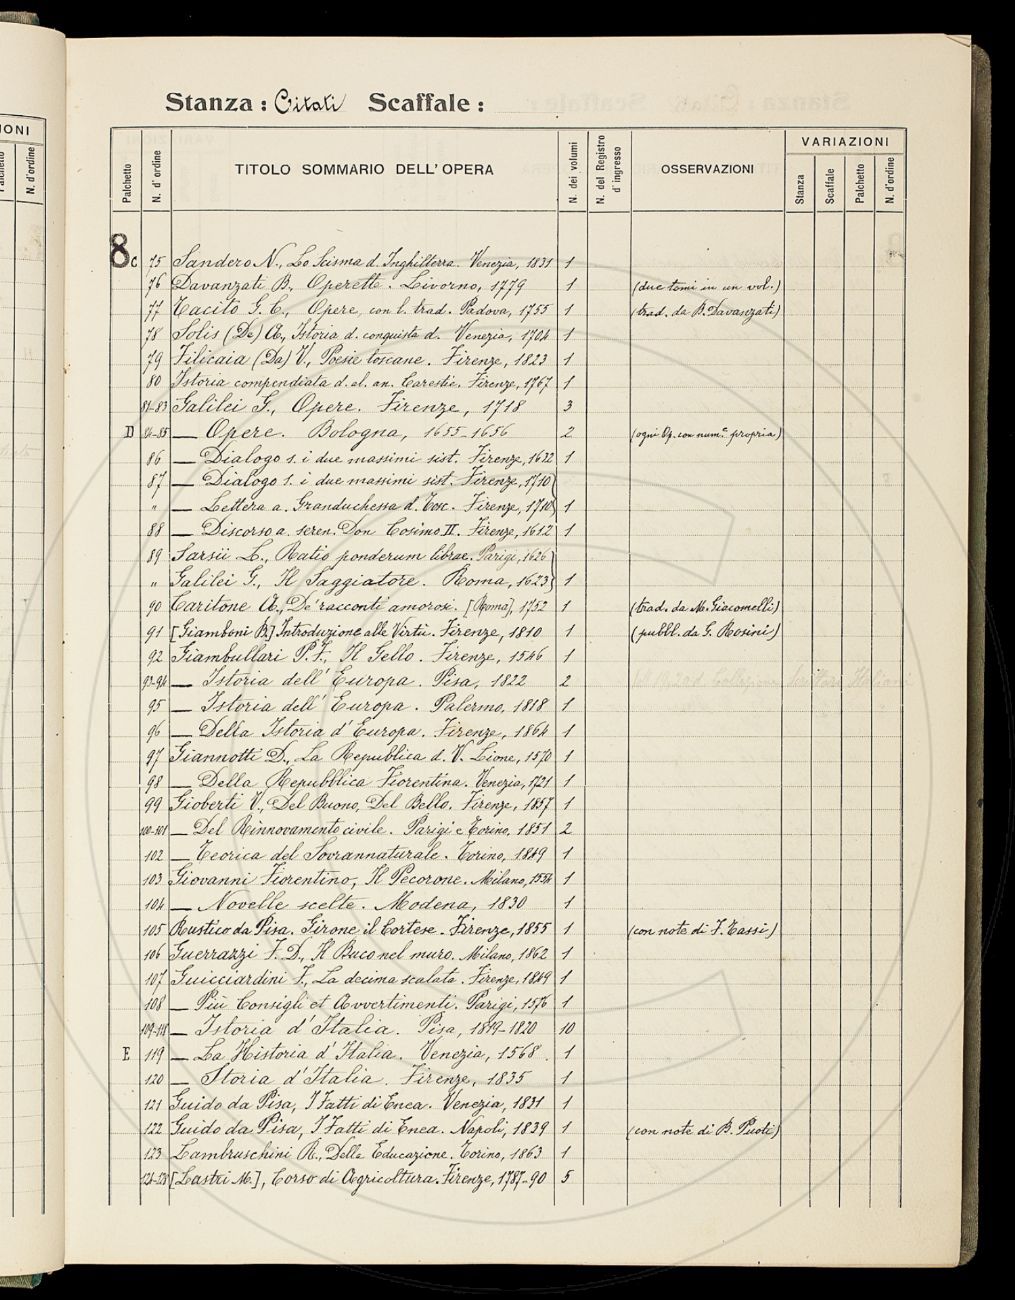 IONI
Palchetto
N. d'ordine
Stanza: Citati Scaffale:
Palchetto
N. d'ordine
TITOLO SOMMARIO DELL'OPERA
N. dei volumi
N. del Registro d'ingresso
OSSERVAZIONI
VARIAZIONI
Stanza
Scaffale
Palchetto
N. d'ordine
8c 75 Sandero N., Lo Scisma d. Inghilterra. Venezia, 1831 1
76 Davanzati B., Operette. Livorno, 1779 1 (due tomi in un vol.)
77 Tacito G. C., Opere, con l. trad. Padova, 1755 1 (trad. da B. Davanzati)
78 Solis (De) A., Istoria d. conquista d. Venezia, 1704 1
79 Filicaia (Da) V., Poesie toscane. Firenze, 1823 1
80 Istoria compendiata d. al. an. Carestie. Firenze, 1767 1
81-83 Galilei G., Opere. Firenze, 1718 3
D 84-85 — Opere. Bologna, 1655-1656 2 (ogni Op. con num.e propria)
86 — Dialogo s. i due massimi sist. Firenze, 1632 1
87 — Dialogo s. i due massimi sist. Firenze, 1710
" — Lettera a. Granduchessa d. Tosc. Firenze, 1710 1
88 — Discorso a. seren. Don Cosimo II. Firenze, 1612 1
89 Sarsii L., Ratio ponderum librae. Parigi, 1626
" Galilei G., Il Saggiatore. Roma, 1623 1
90 Caritone A., De' racconti amorosi. [Roma], 1752 1 (trad. da M. Giacomelli)
91 [Giamboni B.] Introduzione alle Virtù. Firenze, 1810 1 (pubbl. da G. Rosini)
92 Giambullari P. F., Il Gello. Firenze, 1546 1
93-94 — Istoria dell'Europa. Pisa, 1822 2
95 — Istoria dell'Europa. Palermo, 1818 1
96 — Della Istoria d'Europa. Firenze, 1864 1
97 Giannotti D., La Republica d. V. Lione, 1570 1
98 — Della Repubblica Fiorentina. Venezia, 1721 1
99 Gioberti V., Del Buono, Del Bello. Firenze, 1857 1
100-101 — Del Rinnovamento civile. Parigi e Torino, 1851 2
102 — Teorica del Sovrannaturale. Torino, 1849 1
103 Giovanni Fiorentino, Il Pecorone. Milano, 1554 1
104 — Novelle scelte. Modena, 1830 1
105 Rustico da Pisa. Girone il Cortese. Firenze, 1855 1 (con note di F. Tassi)
106 Guerrazzi F. D., Il Buco nel muro. Milano, 1862 1
107 Guicciardini F., La decima scalata. Firenze, 1849 1
108 — Più Consigli et Avvertimenti. Parigi, 1576 1
109-118 — Istoria d'Italia. Pisa, 1819-1820 10
E 119 — La Historia d'Italia. Venezia, 1568. 1
120 — Storia d'Italia. Firenze, 1835 1
121 Guido da Pisa, I Fatti di Enea. Venezia, 1831 1
122 Guido da Pisa, I Fatti di Enea. Napoli, 1839 1 (con note di B. Puoti)
123 Lambruschini R., Della Educazione. Torino, 1863 1
124-128 [Lastri M.], Corso di Agricoltura. Firenze, 1787-90 5